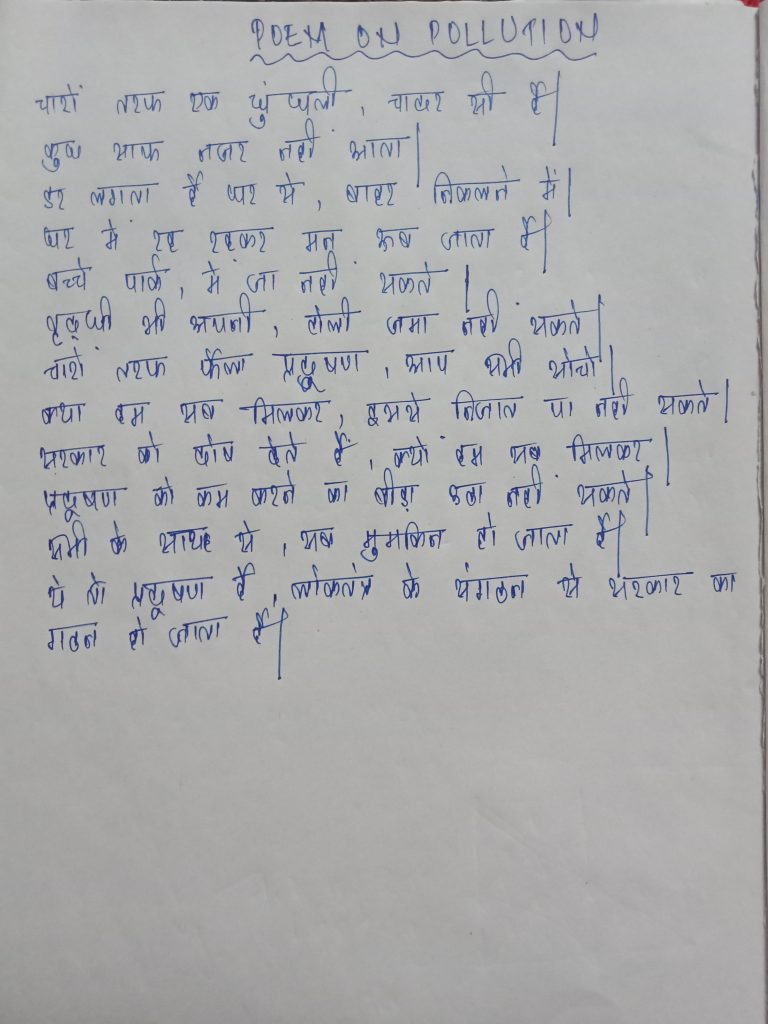 POEM ON POLLUTION
चारों तरफ एक धुंधली, चादर सी है|
कुछ साफ नजर नहीं आता|
डर लगता है घर से, बाहर निकलने में|
घर में रह रहकर मन ऊब जाता है|
बच्चे पार्क, में जा नहीं सकते|
भी अपनी, टोली जमा नहीं सकते|
चारों तरफ फैला प्रदूषण, आप सभी सोचो|
क्या हम सब मिलकर, इससे निजात पा नहीं सकते|
सरकार को दोष देते हैं, क्यों हम सब मिलकर|
प्रदूषण को कम करने का बीड़ा उठा नहीं सकते|
सभी के साथ से, सब मुमकिन हो जाता है|
ये तो प्रदूषण है, लोकतंत्र के संगठन से सरकार का
गठन हो जाता है|